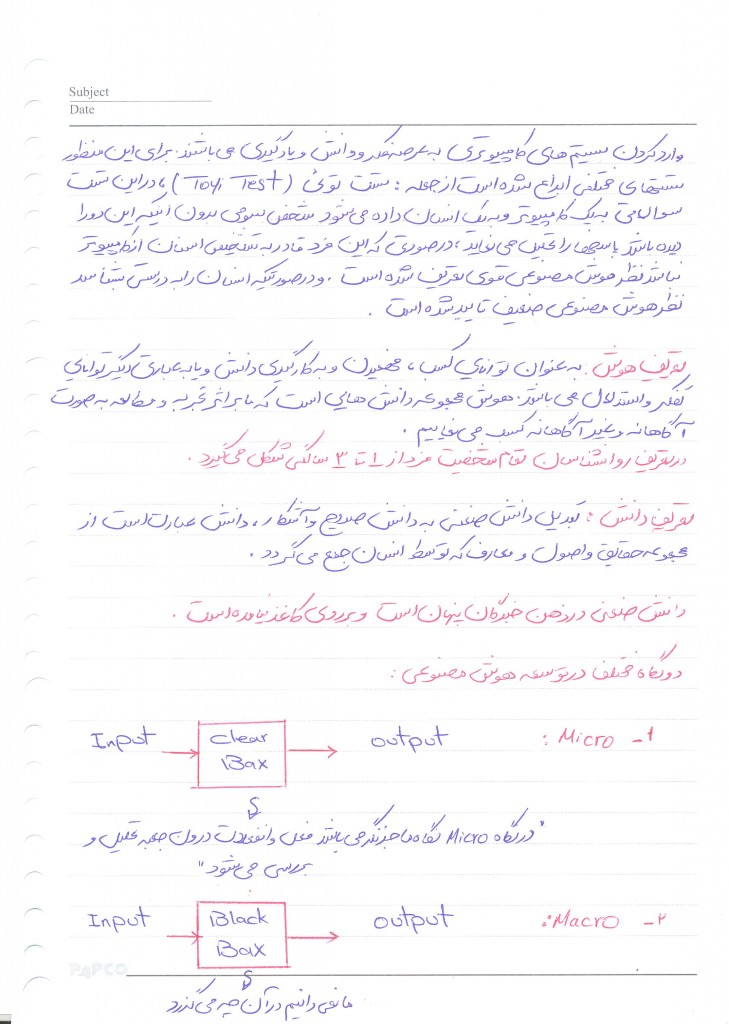 Subject
Date
وارد کردن سیستم های کامپیوتری به عرصه تفکر و دانش و یادگیری می باشند. برای این منظور
تستهای مختلفی ابداع شده است از جمله : تست توئی (Toyi Test) ، در این تست
سوالاتی به یک کامپیوتر و به یک انسان داده می شود شخص سومی بدون آنکه این دو را
دیده باشد پاسخها را تحلیل می نماید ، در صورتی که این فرد قادر به تشخیص انسان از کامپیوتر
نباشد نظر هوش مصنوعی قوی تعریف شده است . و در صورتیکه انسان را به درستی شناسد
نظر هوش مصنوعی ضعیف تایید شده است .
تعریف هوش به عنوان توانایی کسب ، فهمیدن و به کارگیری دانش و یا به عبارتی دیگر توانایی
تفکر و استدلال می باشد. هوش مجموعه دانش هایی است که ما بر اثر تجربه و مطالعه به صورت
آگاهانه و غیر آگاهانه کسب می نماییم .
در تعریف روانشناسان تمام شخصیت فرد از ۱ تا ۳ سالگی شکل می گیرد .
تعریف دانش : تبدیل دانش ضمنی به دانش صریح و آشکار ، دانش عبارت است از
مجموعه حقایق و اصول و معارف که توسط انسان جمع می گردد .
دانش ضمنی در ذهن خبرگان پنهان است و بر روی کاغذ نیامده است .
دو نگاه مختلف در توسعه هوش مصنوعی :
۱- Micro :
Input
Clear
Bax
output
"در نگاه Micro نگاه ما جزنگر می باشد فعل و انفعالات درون جعبه تحلیل و
بررسی می شود"
۲- Macro :
Input
Black
Bax
output
PAPCO
ما نمی دانیم در آن چه می گذرد